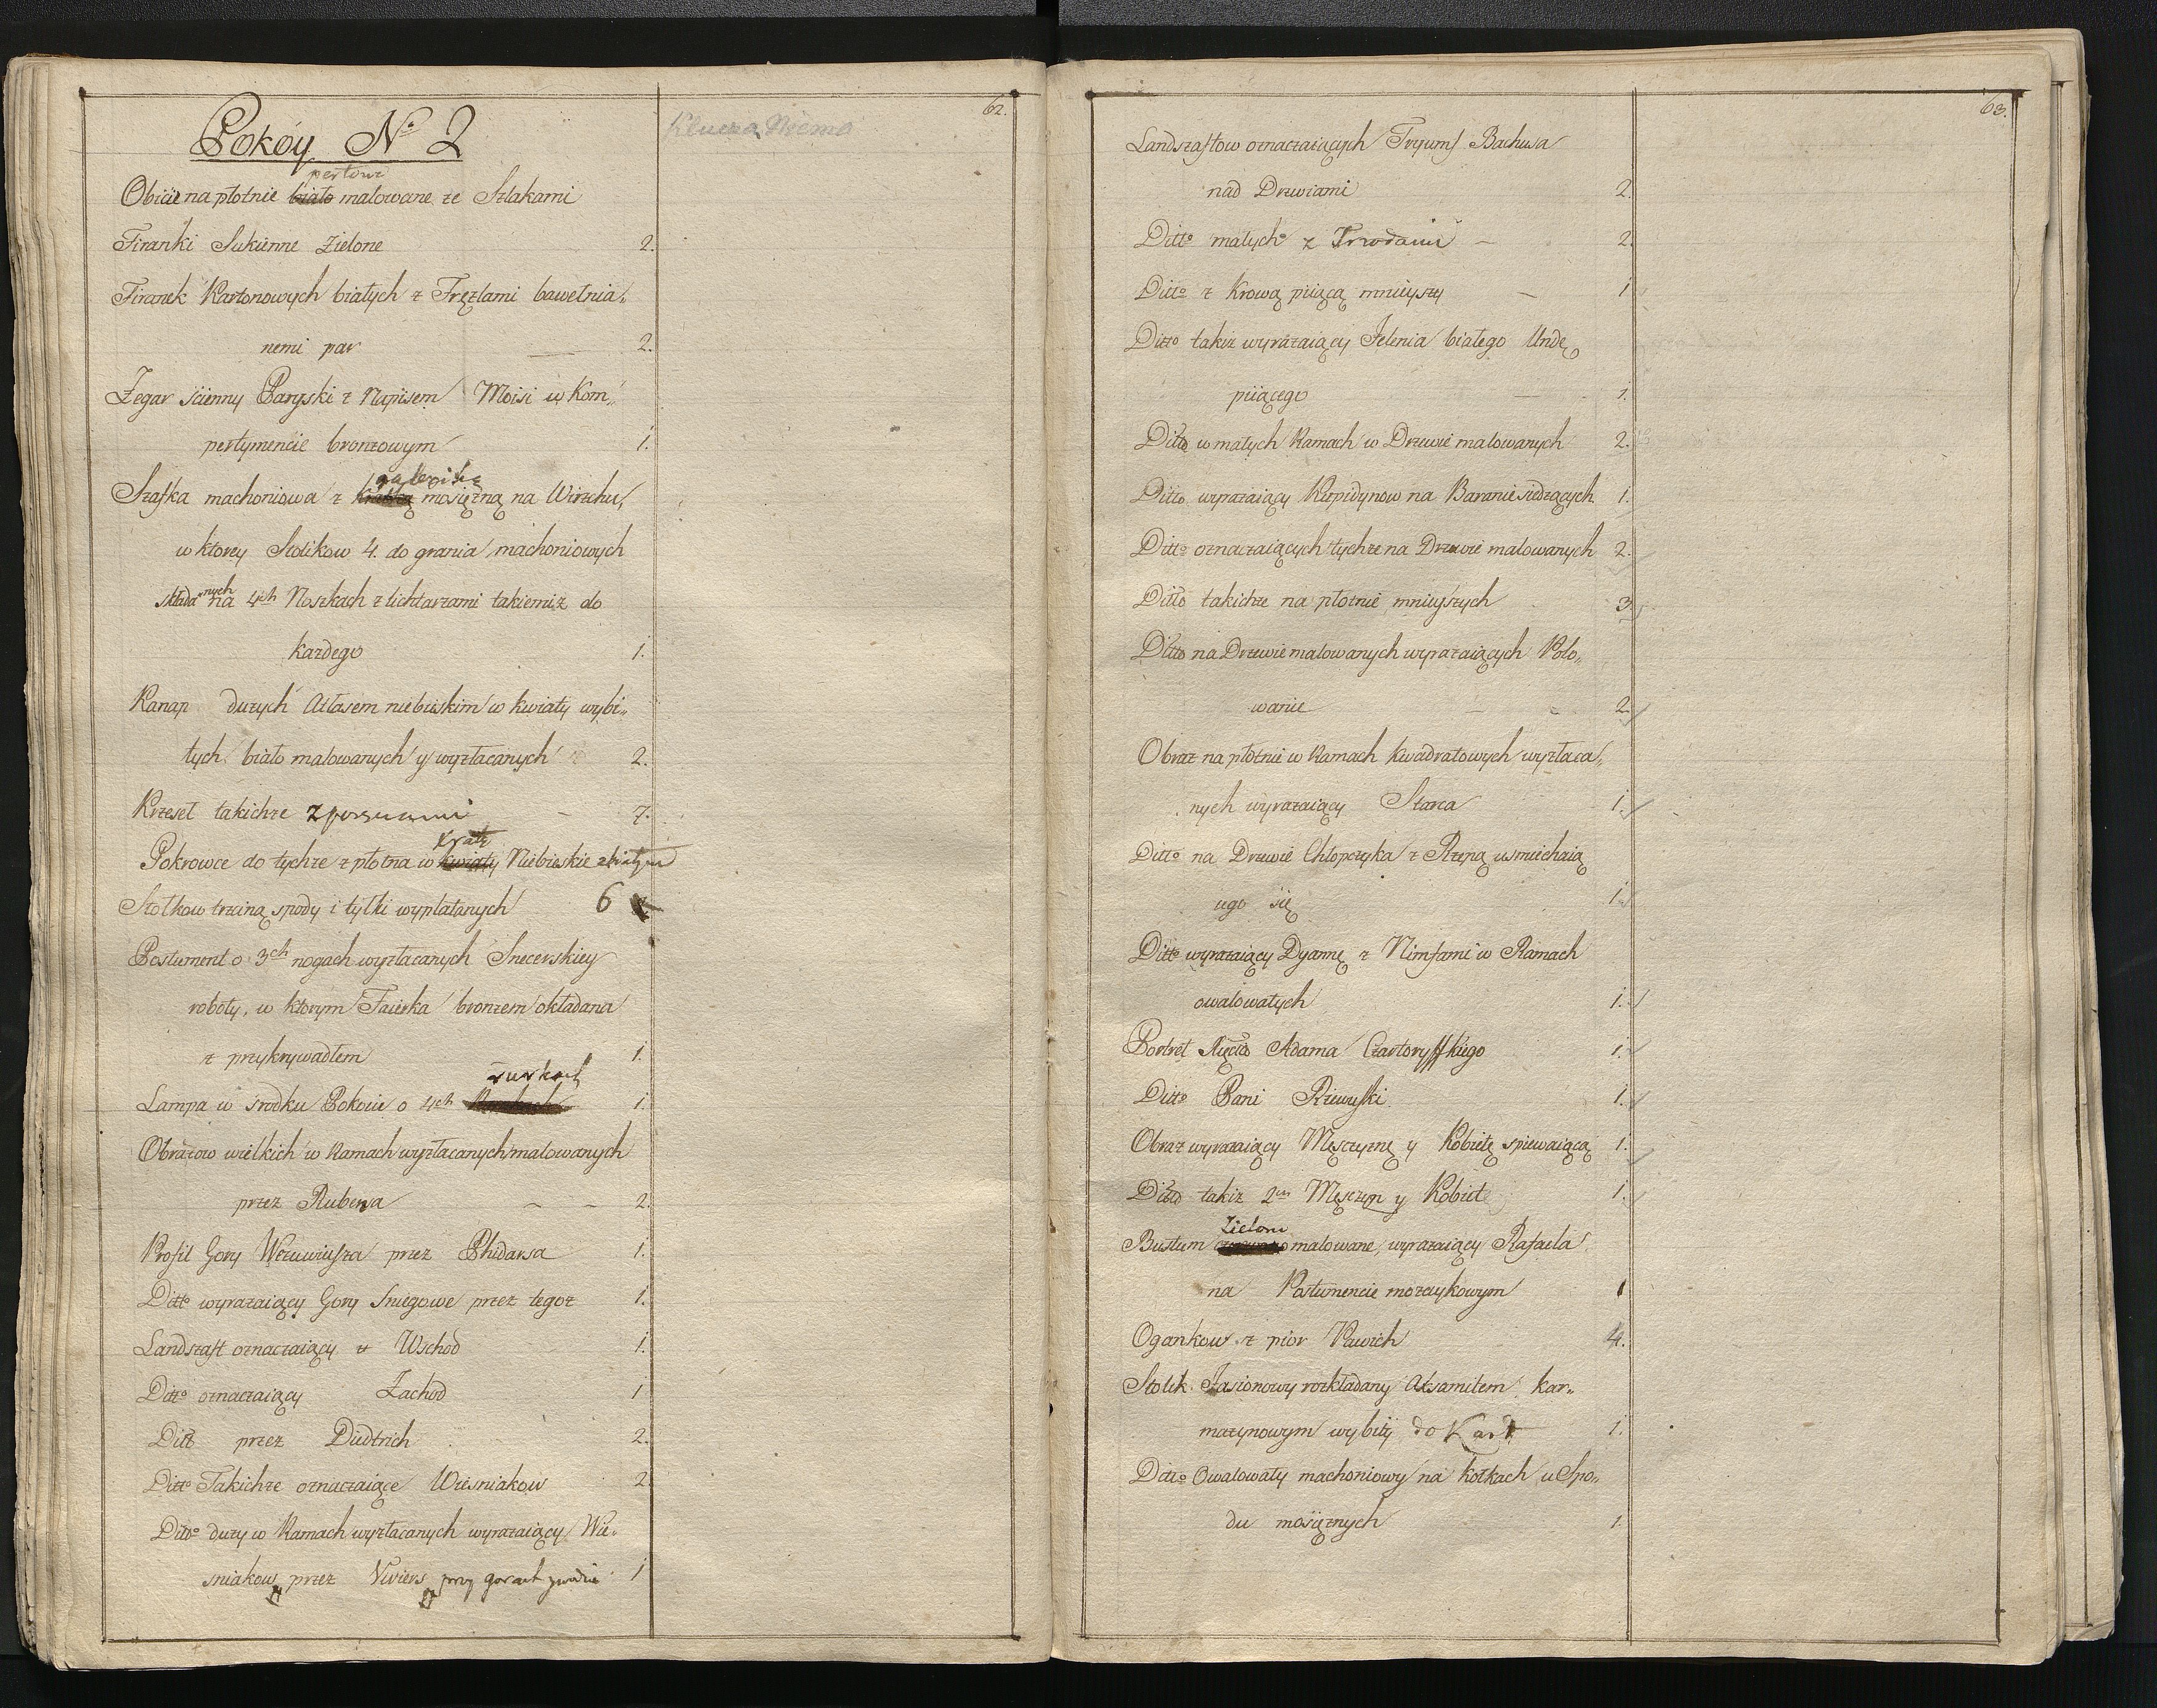 62.
Pokóy No 2
Klucza Niema
perłowe
Obicie na płotnie biało malowane ze Szlakami
Firanki Sukienne Zielone 2.
Firanek Kartonowych białych z Fręzlami bawełnia„
nemi par 2.
Zegar ścienny Paryski z Napisem Moisi w Kom„
pertymencie bronzowym 1.
galeriką
Szafka machoniowa z mosiężną na Wirzchu,
w ktorey Stolikow 4. do grania machoniowych
nych
składa na 4ch Noszkach z lichtarzami takiemiż do
kazdego 1.
Kanap duzych Atłasem niebieskim w kwiaty wybi„
tych biało malowanych y wyzłacanych 2.
Krzeseł takichze 7.
kratę
Pokrowce do tychze z płotna w kwiaty Niebieskie z białym
Stołkow trzciną spody i tyłki wyplatanych 6
Postument o 3ch nogach wyzłacanych Snecerskiey
roboty, w ktorym Faierka bronzem okładana
z przykrywadłem 1.
rurkach
Lampa w środku Pokoiu o 4ch 1.
Obrazow wielkich w Ramach wyzłacanych malowanych
przez Rubensa 2.
Profil Gory Wezuwiusza przez Phidarsa 1.
Ditto wyrazaiący Gory Sniegowe przez tegoz 1.
Landszaft oznaczaiący Wschod 1.
Ditto oznaczaiący Zachod 1
Ditto przez Didtrich 2.
Ditto Takichze oznaczaiące Wiesniakow 2.
Ditto duzy w Ramach wyzłacanych wyrazaiący Wie„
sniakow przez Viviers przy gorach 1
63.
Landszaftow oznaczaiących Tryumf Bachusa
nad Drzwiami 2.
Ditto małych z Trzodami 2.
Ditto z Krową piiącą mnieyszy 1
Ditto takiz wyrazaiący Jelenia białego Undę
piiącego 1.
Ditto w małych Ramach w Drzewie malowanych 2.
Ditto wyrazaiący Kupidynow na Baranie siedzących 1.
Ditto oznaczaiących tychze na Drzewie malowanych 2.
Ditto takichze na płotnie mnieyszych 3
Ditto na Drzewie malowanych wyrazaiących Polo„
wanie 2.
Obraz na płotnie w Ramach Kwadratowych wyzłaca„
nych wyrazaiący Starca 1.
Ditto na Drzewie Chłopczyka z Rzepą usmiechaią
cego się 1.
Ditto wyrazaiący Dyannę z Nimfami w Ramach
owalowatych 1.
Portret Xięcia Adama Czartoryskiego 1.
Ditto Pani Rzewuski 1.
Obraz wyrazaiący Męsczyznę y Kobietę spiewaiącą 1.
Ditto takiz 2ch Męsczyzn y Kobiet 1.
Zielono
Bustum malowane, wyrazaiący Rafaela
na Postumencie mozaykowym 1
Ogankow z pior Pawich 4.
Stolik Jasionowy rozkładany Axamitem kar„
mazynowym wybity do Kart 1.
Ditto Owalowaty machoniowy na kołkach u Spo„
du mosiężnych 1.